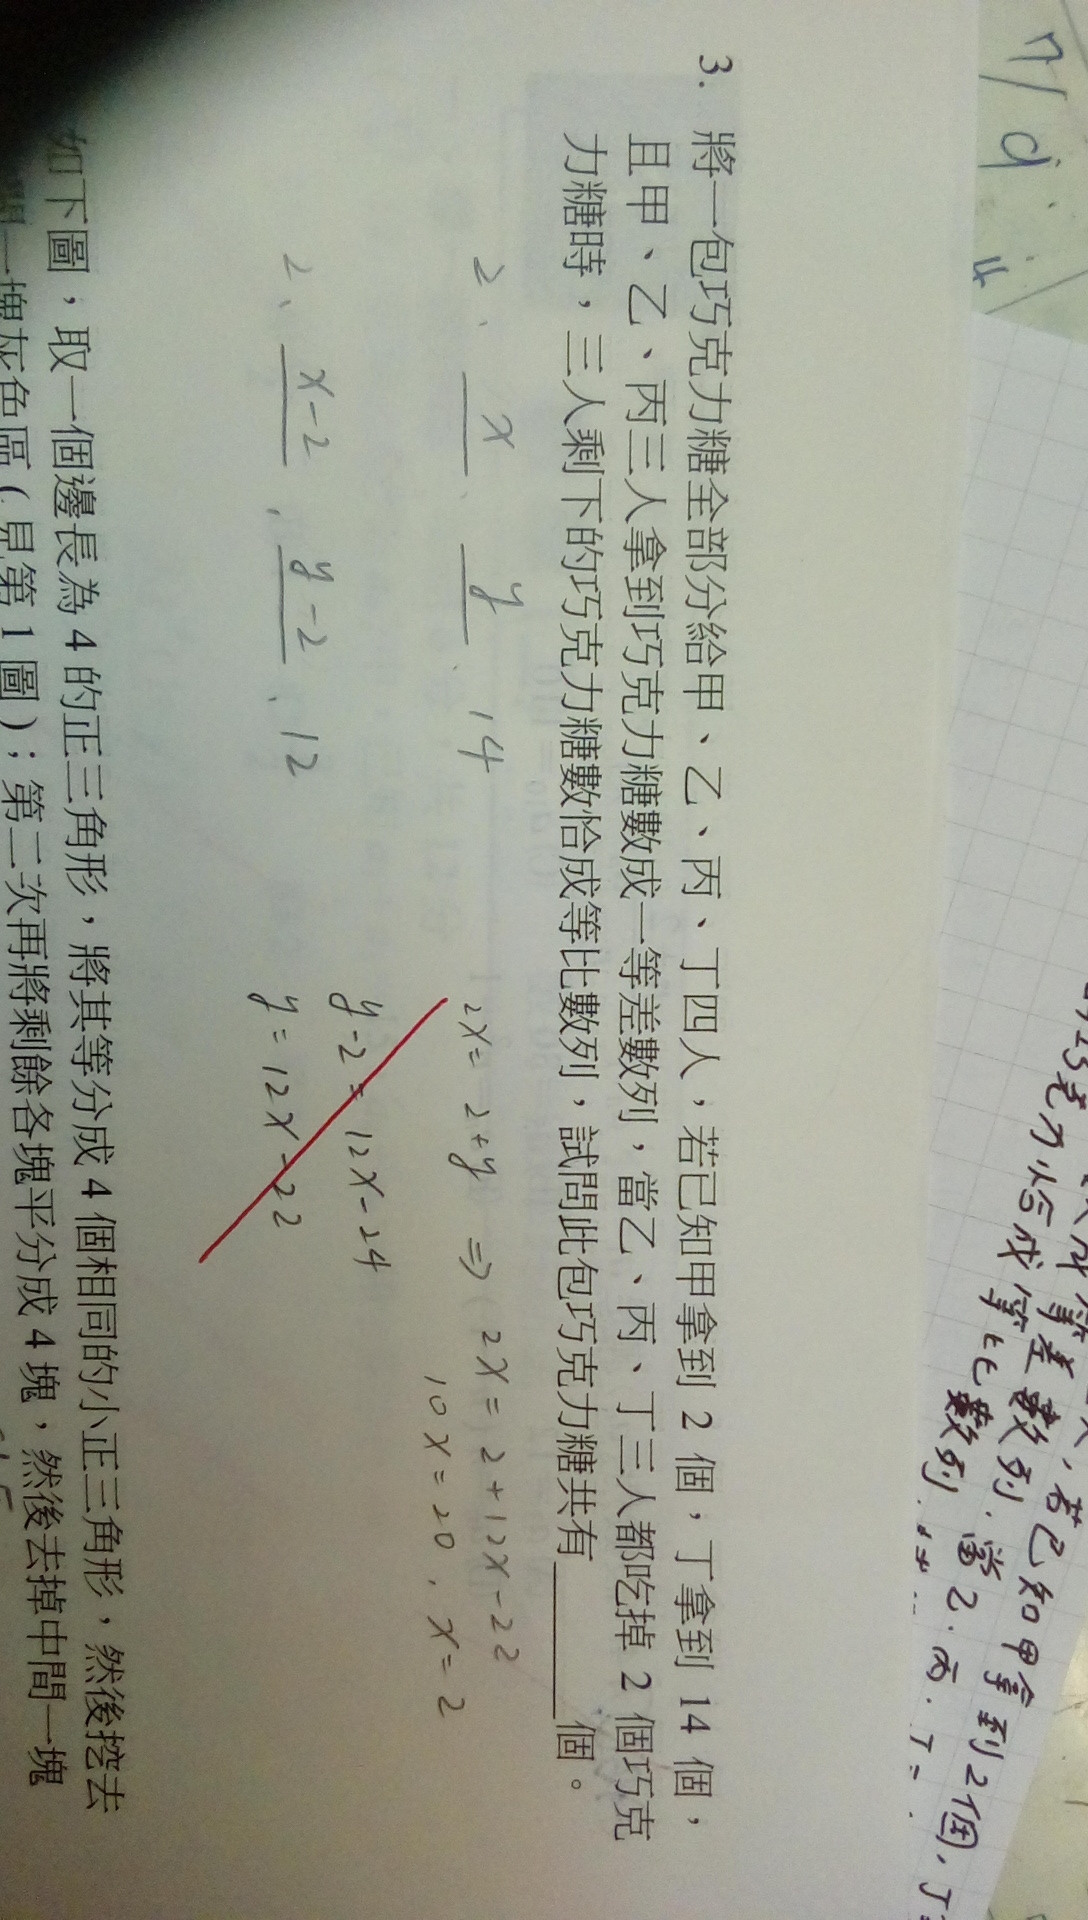 3. 將一包巧克力糖全部分給甲、乙、丙、丁四人，若已知甲拿到 2 個，丁拿到 14 個，
且甲、乙、丙三人拿到巧克力糖數成一等差數列，當乙、丙、丁三人都吃掉 2 個巧克
力糖時，三人剩下的巧克力糖數恰成等比數列，試問此包巧克力糖共有______個。
2、x、y、14
2x = 2+y ⇒ 2x = 2+12x-22
10x = 20, x = 2
2、x-2、y-2、12
y-2 = 12x-24
y = 12x-22
如下圖，取一個邊長為 4 的正三角形，將其等分成 4 個相同的小正三角形，然後挖去
一塊灰色區(見第 1 圖)；第二次再將剩餘各塊平分成 4 塊，然後去掉中間一塊
若已知甲拿到2個，丁
等差數列，當乙、丙、丁
恰成等比數列